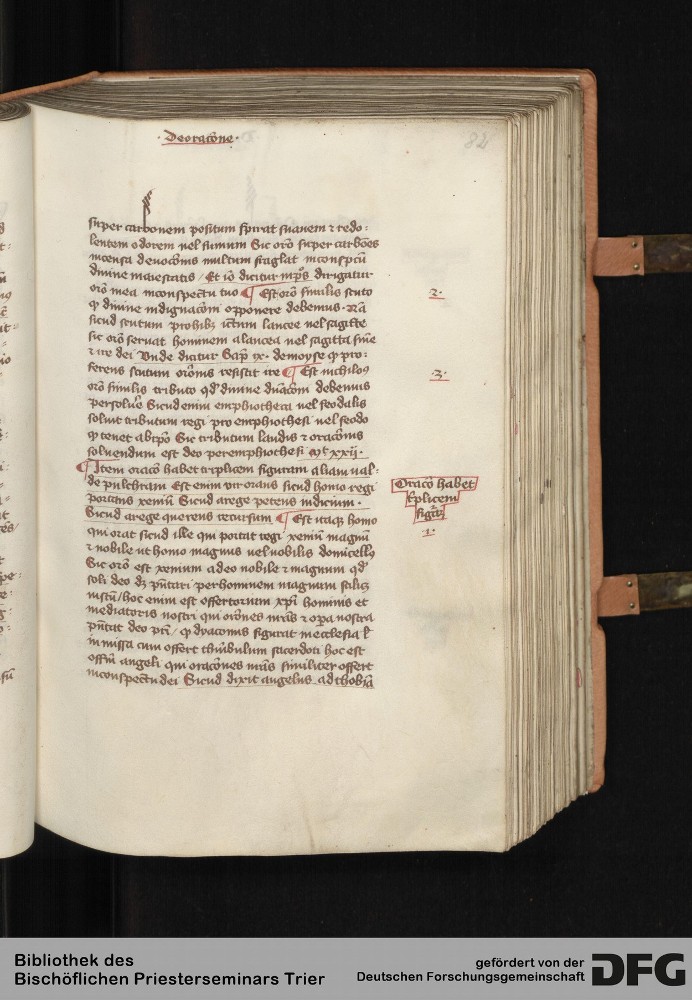 · De oracōne ·
82
super carbonem positum spirat suauem ⁊ redo-
lentem odorem uel fumum Sic orō super carbōes
incensa deuocōnis multum fraglat inconspcū
diuine maiestatis / Et iō dicitur in ps dirigatur
orō mea inconspectu tuo ¶ Est orō similis scuto
qd diuine indignacōni opponere debemus · Nā
sicud scutum prohibꝫ ictum lancee uel sagitte
sic orō seruat hominem a lancea uel sagitta sine
⁊ ire dei Unde dicitur Sap ix · de moyse qd pro-
ferens scutum orōnis resistit ire ¶ Est nichilo⁹
orō similis tributo qd diuine dnacōni debemus
persolue Sicud enim emphiotheca uel feodalis
soluit tributum regi pro emphiothesi uel feodo
qd tenet ab ipo Sic tributum laudis ⁊ oracōnis
soluendum est deo per emphiothesi Mt xxij ·
¶ Item oracō habet triplicem figuram aliam ual-
de pulchram Est enim vir orans sicud homo regi
portans xenium Sicud a rege petens iudicium ·
Sicud a rege querens recursum ¶ Est itaqꝫ homo
qui orat sicud ille qui portat regi xenium magnū
⁊ nobile ut homo magnus uel nobilis domicell⁹
Sic orō est xenium adeo nobile ⁊ magnum qd
soli deo dꝫ pn̄tari per hominem magnum scilicꝫ
iustū / hoc enim est offertorium xp̄i hominis et
mediatoris nostri qui orōnes nr̄as ⁊ opa nostra
pn̄tat deo pr̄i / qd dyaconus figurat in ecclesia
in missa cum offert thuribulum sacerdoti hoc est
offm̄ angeli qui oracōnes nr̄as similiter offert
inconspectu dei Sicud dixit angelus ad thobiā
· 2 ·
· 3 ·
Oracō habet
triplicem
figurā
· 1 ·
Bibliothek des
Bischöflichen Priesterseminars Trier
gefördert von der
Deutschen Forschungsgemeinschaft
DFG